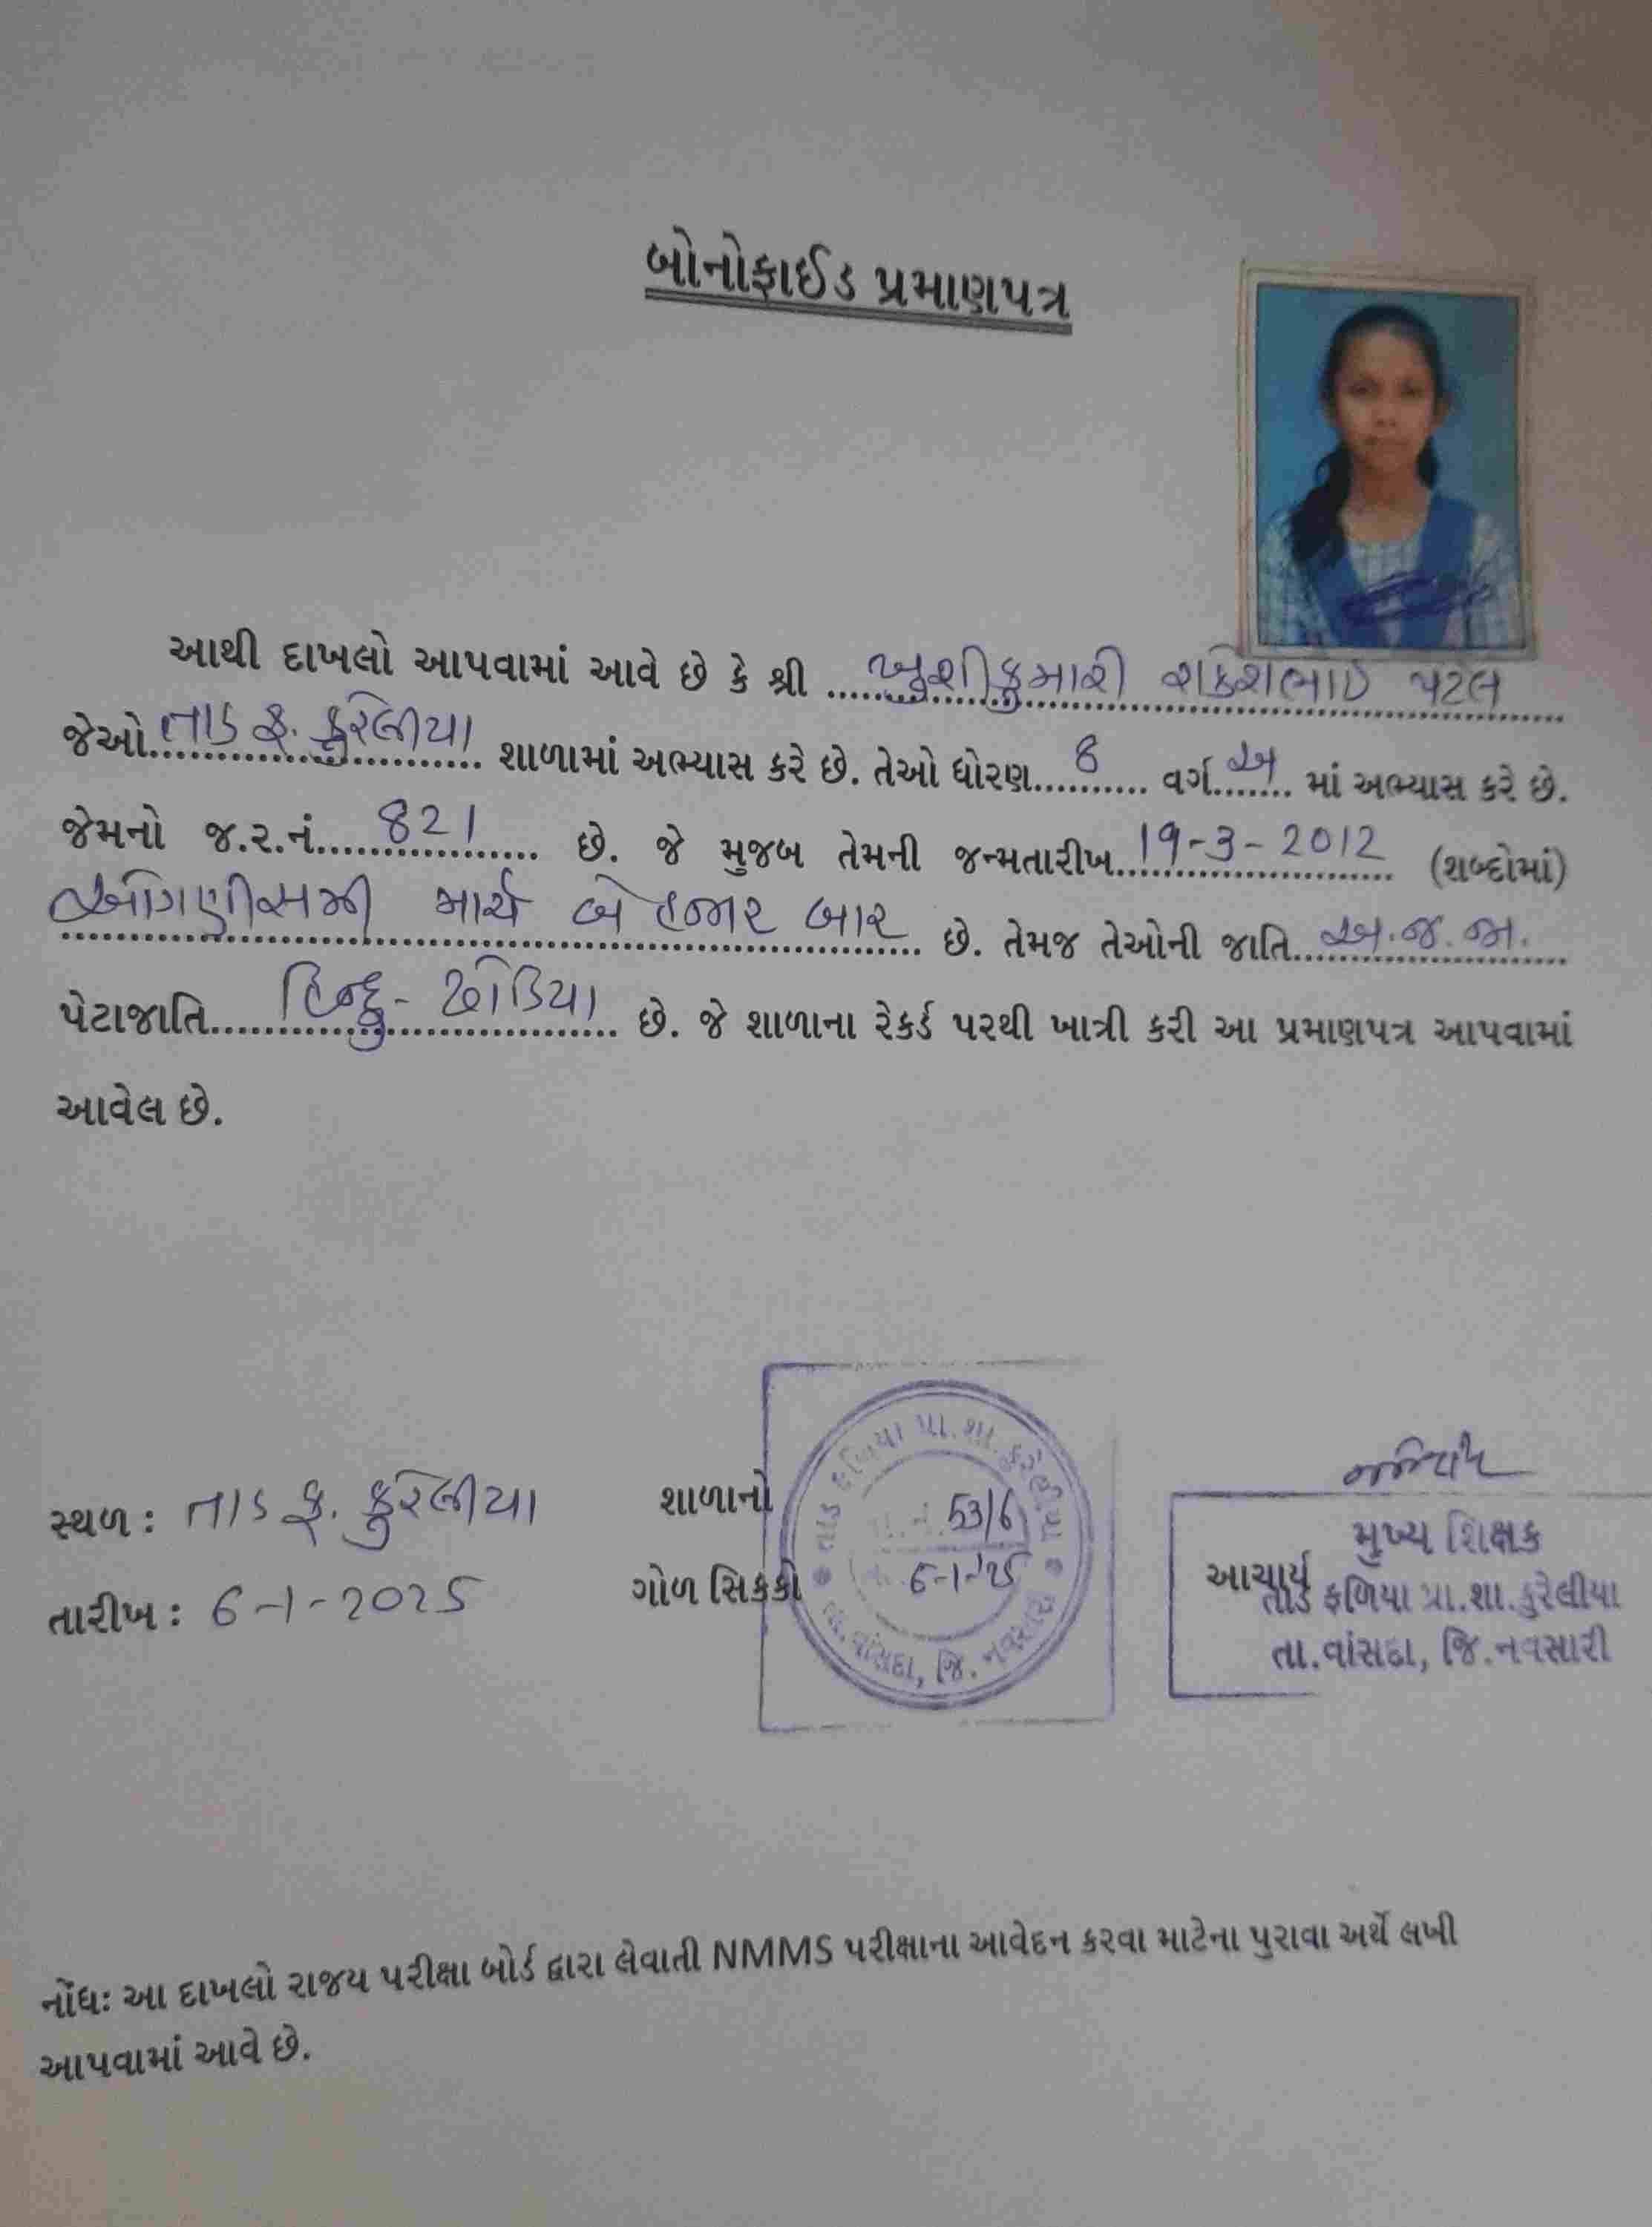 બોનોફાઈડ પ્રમાણપત્ર
આથી દાખલો આપવામાં આવે છે કે શ્રી ખુશીકુમારી રાકેશભાઈ પટેલ
જેઓ તાડ ફ. કુરેલીયા શાળામાં અભ્યાસ કરે છે. તેઓ ધોરણ 8 વર્ગ અ માં અભ્યાસ કરે છે.
જેમનો જ.ર.નં. 821 છે. જે મુજબ તેમની જન્મતારીખ 19-3-2012 (શબ્દોમાં)
ઓગણીસમી માર્ચ બે હજાર બાર છે. તેમજ તેઓની જાતિ અ.જ.જા.
પેટાજાતિ હિન્દુ- ધોડિયા છે. જે શાળાના રેકર્ડ પરથી ખાત્રી કરી આ પ્રમાણપત્ર આપવામાં
આવેલ છે.
સ્થળ : તાડ ફ. કુરેલીયા
તારીખ : 6-1-2025
શાળાનો
ગોળ સિક્કો
તાડ ફળિયા પ્રા.શા. કુરેલીયા
53/6
6-1-25
તા.વાંસદા, જિ. નવસારી
મુખ્ય શિક્ષક
આચાર્ય
તાડ ફળિયા પ્રા.શા.કુરેલીયા
તા.વાંસદા, જિ.નવસારી
નોંધઃ આ દાખલો રાજય પરીક્ષા બોર્ડ દ્વારા લેવાતી NMMS પરીક્ષાના આવેદન કરવા માટેના પુરાવા અર્થે લખી
આપવામાં આવે છે.